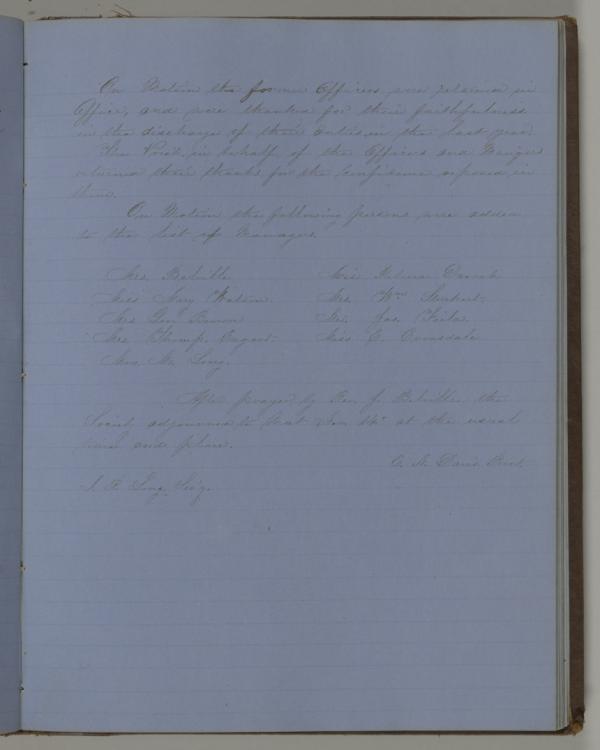 On Motion the former Officers were retained in
Office, and were thanked for their faithfulness
in the discharge of their duties in the last year.
The Prest. in behalf of the Officers and Managers
returned their thanks for the confidence reposed in
them.
On Motion the following persons were added
to the list of Managers.
Mrs Belville Miss Helena
Miss Mary Watson Mrs Wm Stewart
Mrs Geo. Mrs Jas.
Mrs Thomp. Miss E. Croasdale
Mrs. M. Long.
After prayer by Rev J. Belville, the
Society adjourned to meet Jan 14th at the usual
time and place.
C. H. Davis Prest.
S. R. Long. Sec'y.